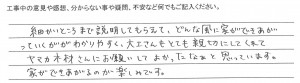 工事中の意見や感想、分からない事や疑問、不安など何でもご記入ください。
細かいところまで説明してもらえて、どんな風に家ができあが
っていくかがわかりやすく、大工さんもとても親切にして下さって
ヤマカ木材さんにお願いして良かったなぁと思っています。
家ができあがるのが楽しみです。